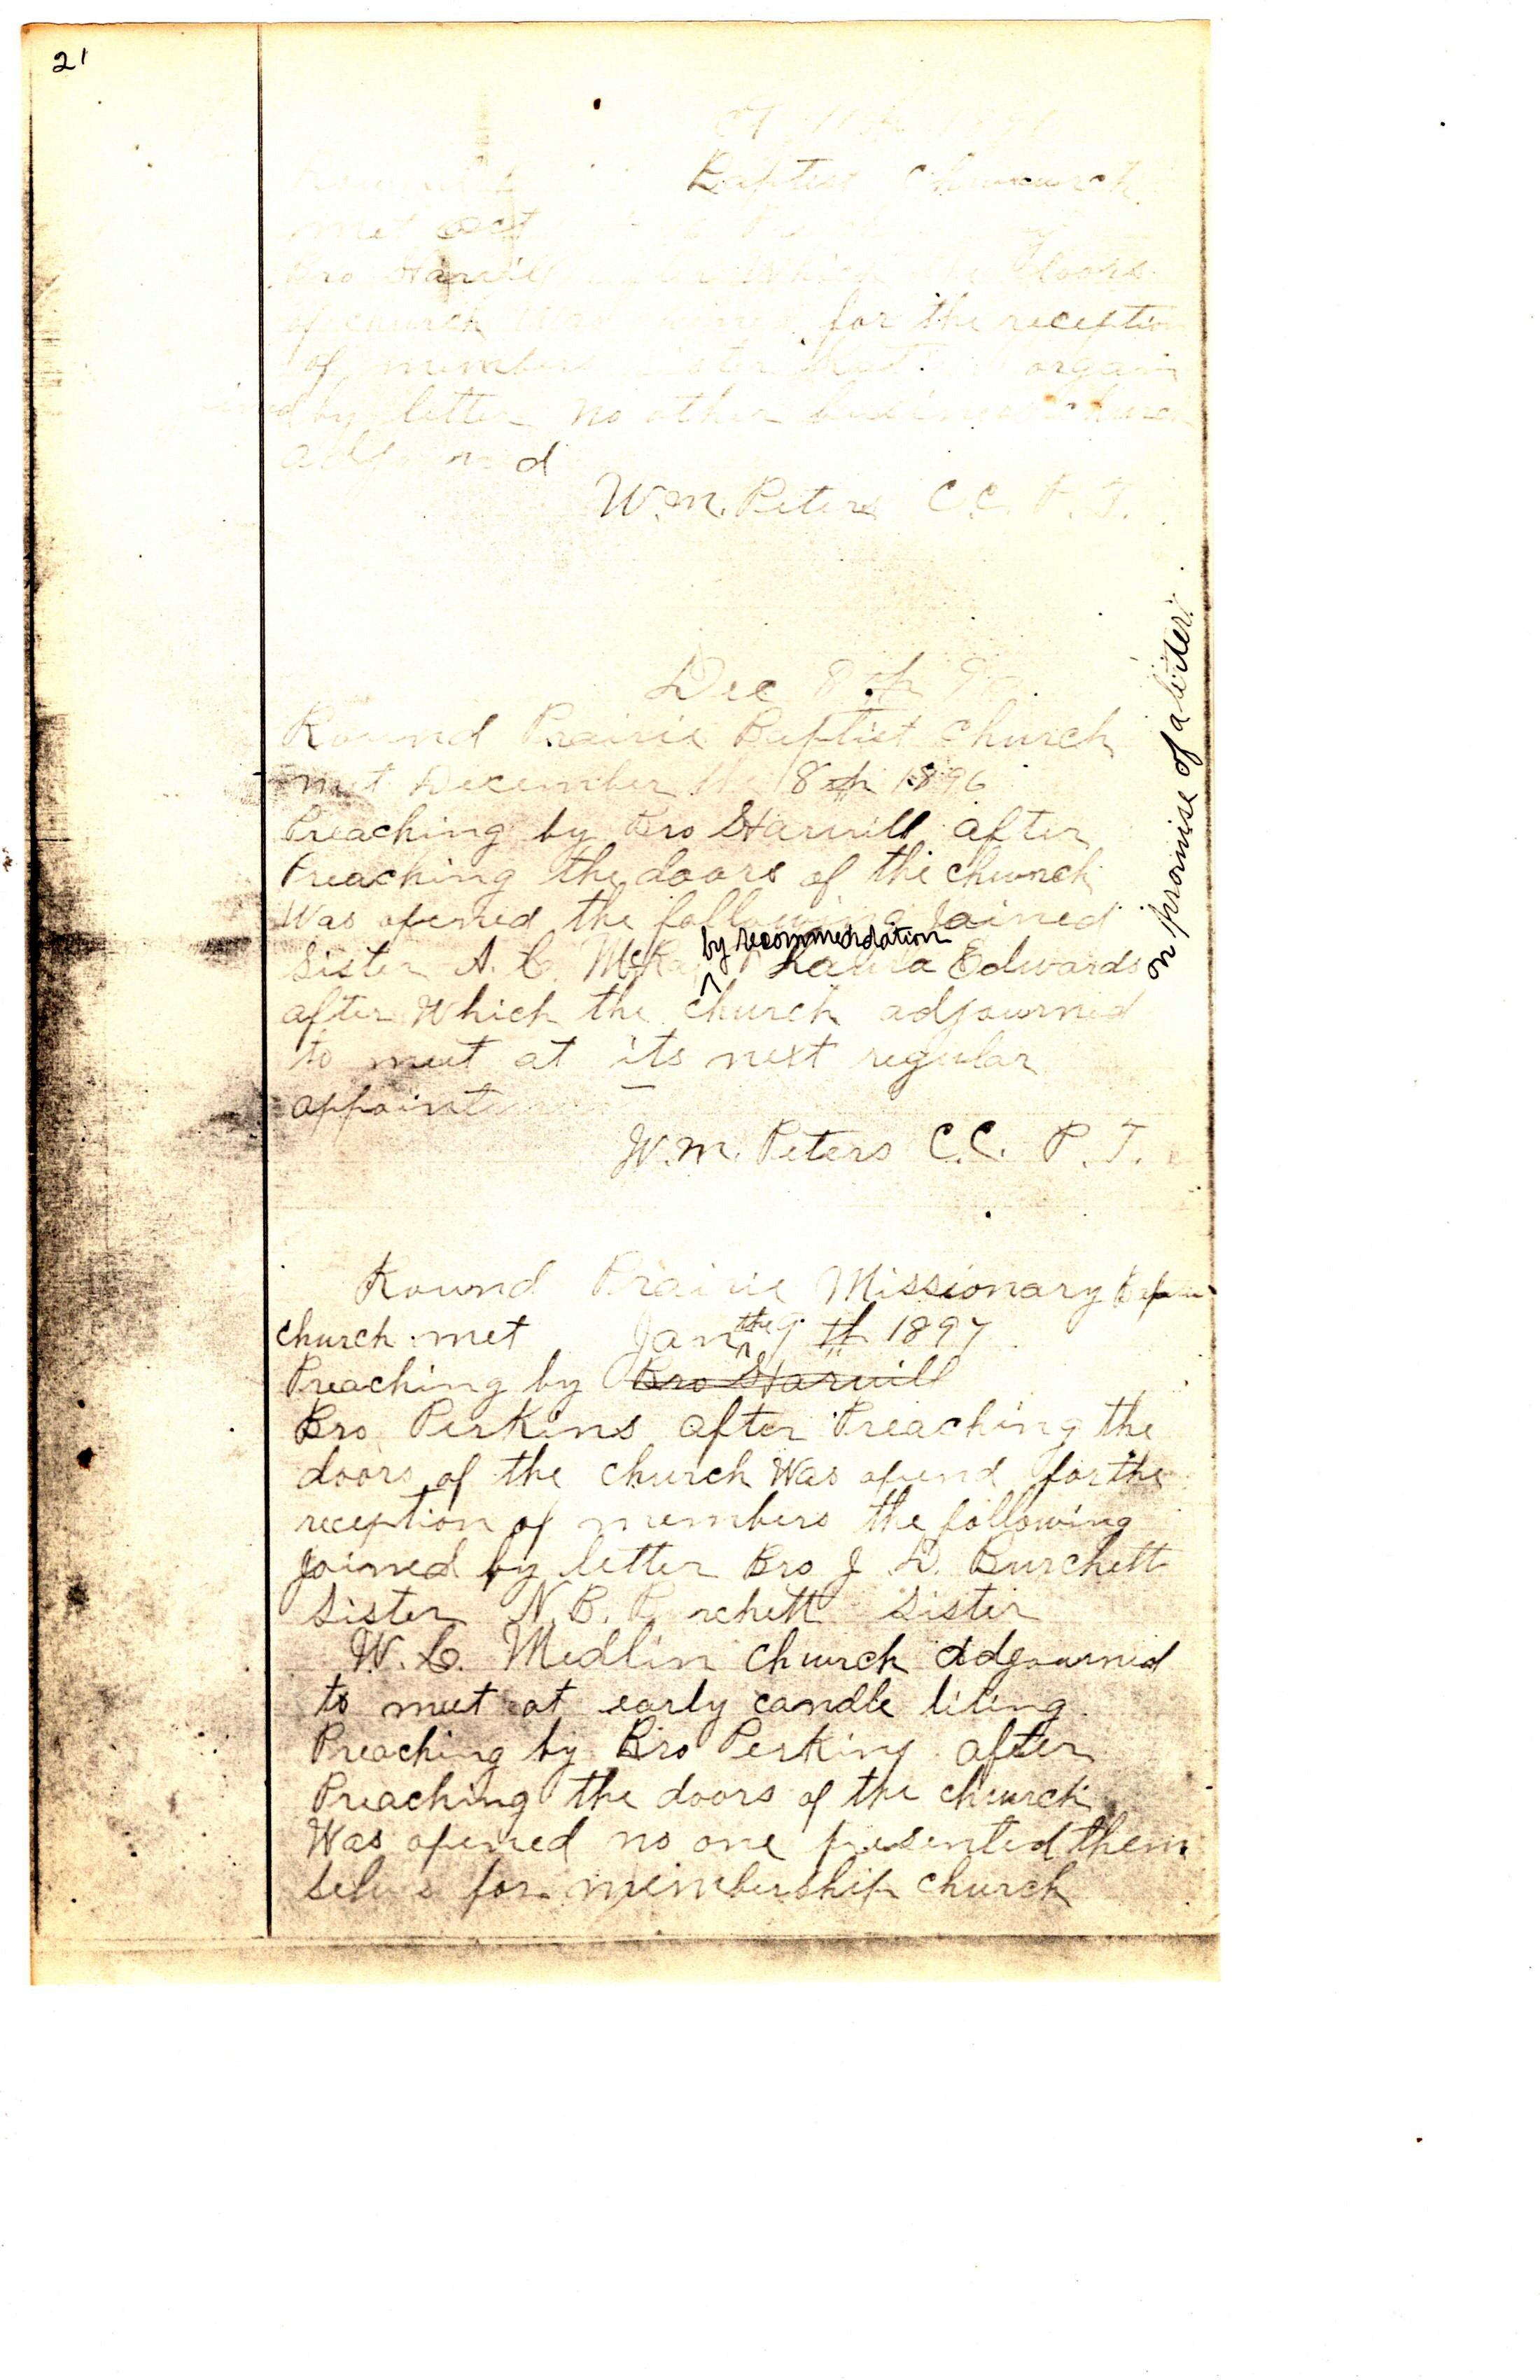 21
Baptist Chururch
met Oct
Bro Harvill which the doors
of church was for the reception
of members
by letter no other business
W.M. Peters C.C. P.T.
Dec 8th
Round Prairie Baptist Church
met December the 8th 1896
Preaching by Bro Harvill after
Preaching the doors of the church
Was opened the following joined
by recommendation
Sister A. C. Laura Edwards
on promise of a letter.
after Which the church adjourned
to meet at its next regular
appointment
W.M. Peters C.C. P.T.
Round Prairie Missionary
church met Jan the 9th 1897
Preaching by Bro Harvill
Bro Perkins after Preaching the
doors of the church Was opend for the
reception of members the following
joined by letter Bro J. D. Burchett
Sister N.B. Burchett Sister
W. C. Medlin church adjourned
to meet at early candle liting
Preaching by Bro Perkins after
Preaching the doors of the church
Was opened no one presented them
selves for membership church